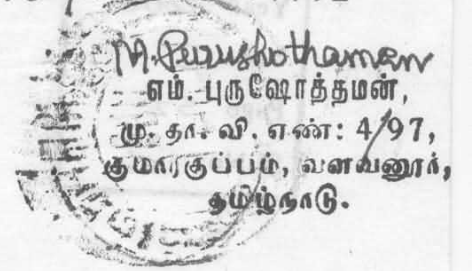 M. Purushothaman
எம். புருஷோத்தமன்,
மு. தா. வி. எண்: 4/97,
குமாரகுப்பம், வளவனூர்,
தமிழ்நாடு.